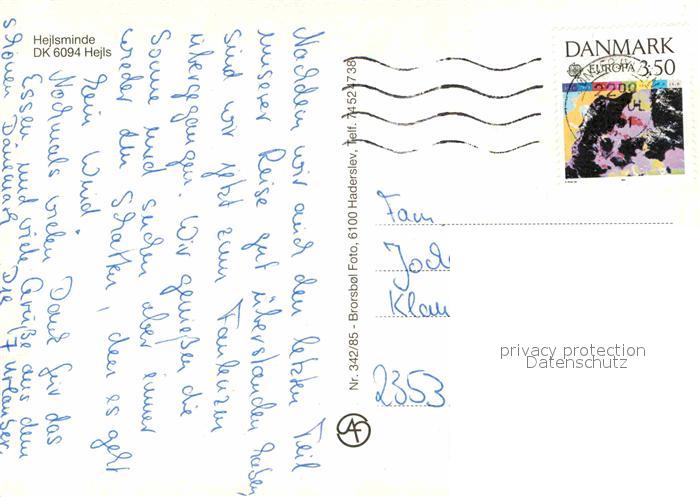 Hejlsminde
DK 6094 Hejls
Nachdem wir auch den letzten Teil
unserer Reise gut überstanden haben,
sind wir jetzt zum Faulenzen
übergegangen. Wir genießen die
Sonne und suchen aber immer
wieder den Schatten, denn es geht
kein Wind.
Nochmals vielen Dank für das
Essen und viele Grüße aus dem
schönen Dänemark. Die 7 Urlauber.
Nr. 342/85 - Brorsbøl Foto, 6100 Haderslev, Telf. 7452 4738
DANMARK
EUROPA 3.50
Fam.
Joch
Klau
2353
privacy protection
Datenschutz